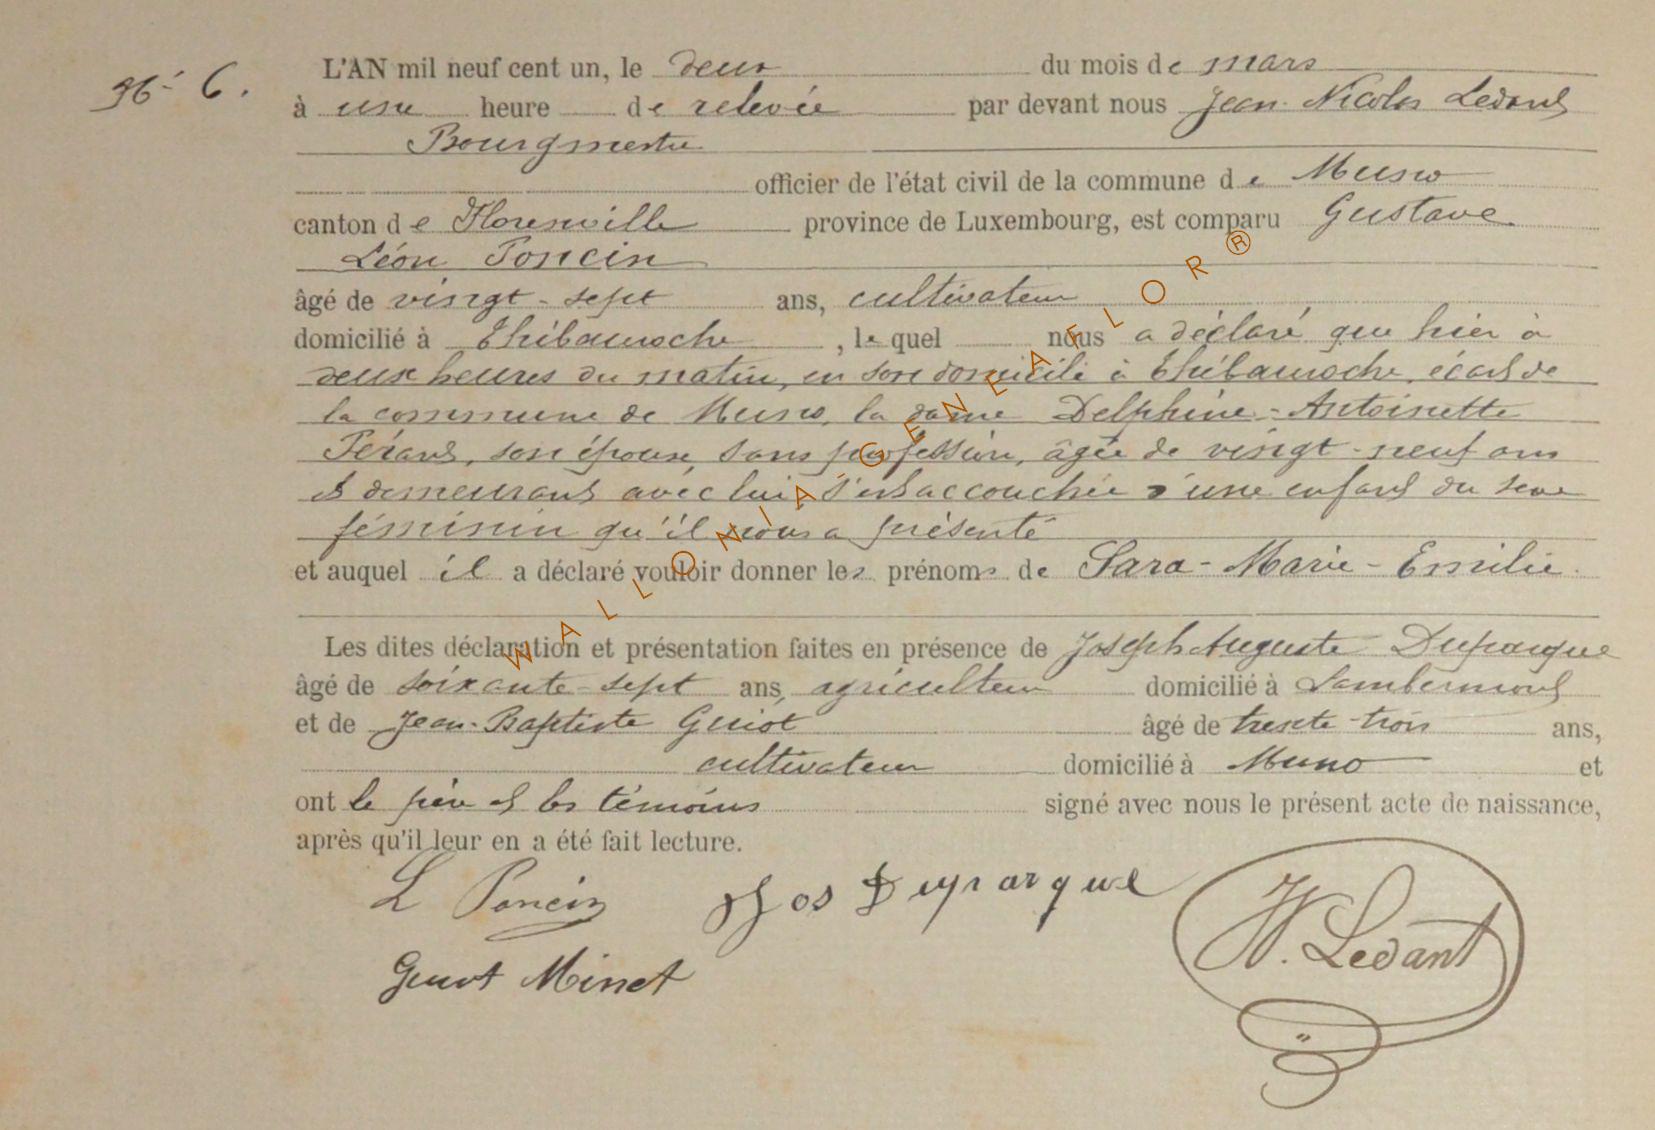 N° 6.
L'AN mil neuf cent un, le deux du mois de mars
à une heure de relevée par devant nous Jean Nicolas Ledant
Bourgmestre
officier de l'état civil de la commune de Muno
canton de Florenville province de Luxembourg, est comparu Gustave
Léon Poncin
âgé de vingt-sept ans, cultivateur
domicilié à Thibauroche, lequel nous a déclaré que hier à
deux heures du matin, en son domicile à Thibauroche, écart de
la commune de Muno, la dame Delphine-Antoinette
Pérard, son épouse, sans profession, âgée de vingt-neuf ans
et demeurant avec lui, s'est accouchée d'une enfant du sexe
féminin qu'il nous a présenté
et auquel il a déclaré vouloir donner les prénoms de Sara-Marie-Emilie.
Les dites déclaration et présentation faites en présence de Joseph Auguste Duparque
âgé de soixante-sept ans, agriculteur domicilié à Lambermont
et de Jean-Baptiste Guiot âgé de trente-trois ans,
cultivateur domicilié à Muno et
ont le père et les témoins signé avec nous le présent acte de naissance,
après qu'il leur en a été fait lecture.
L Poncin Jos Duparque N. Ledant
Guiot Minet
WALLONIA GENEAFLOR®